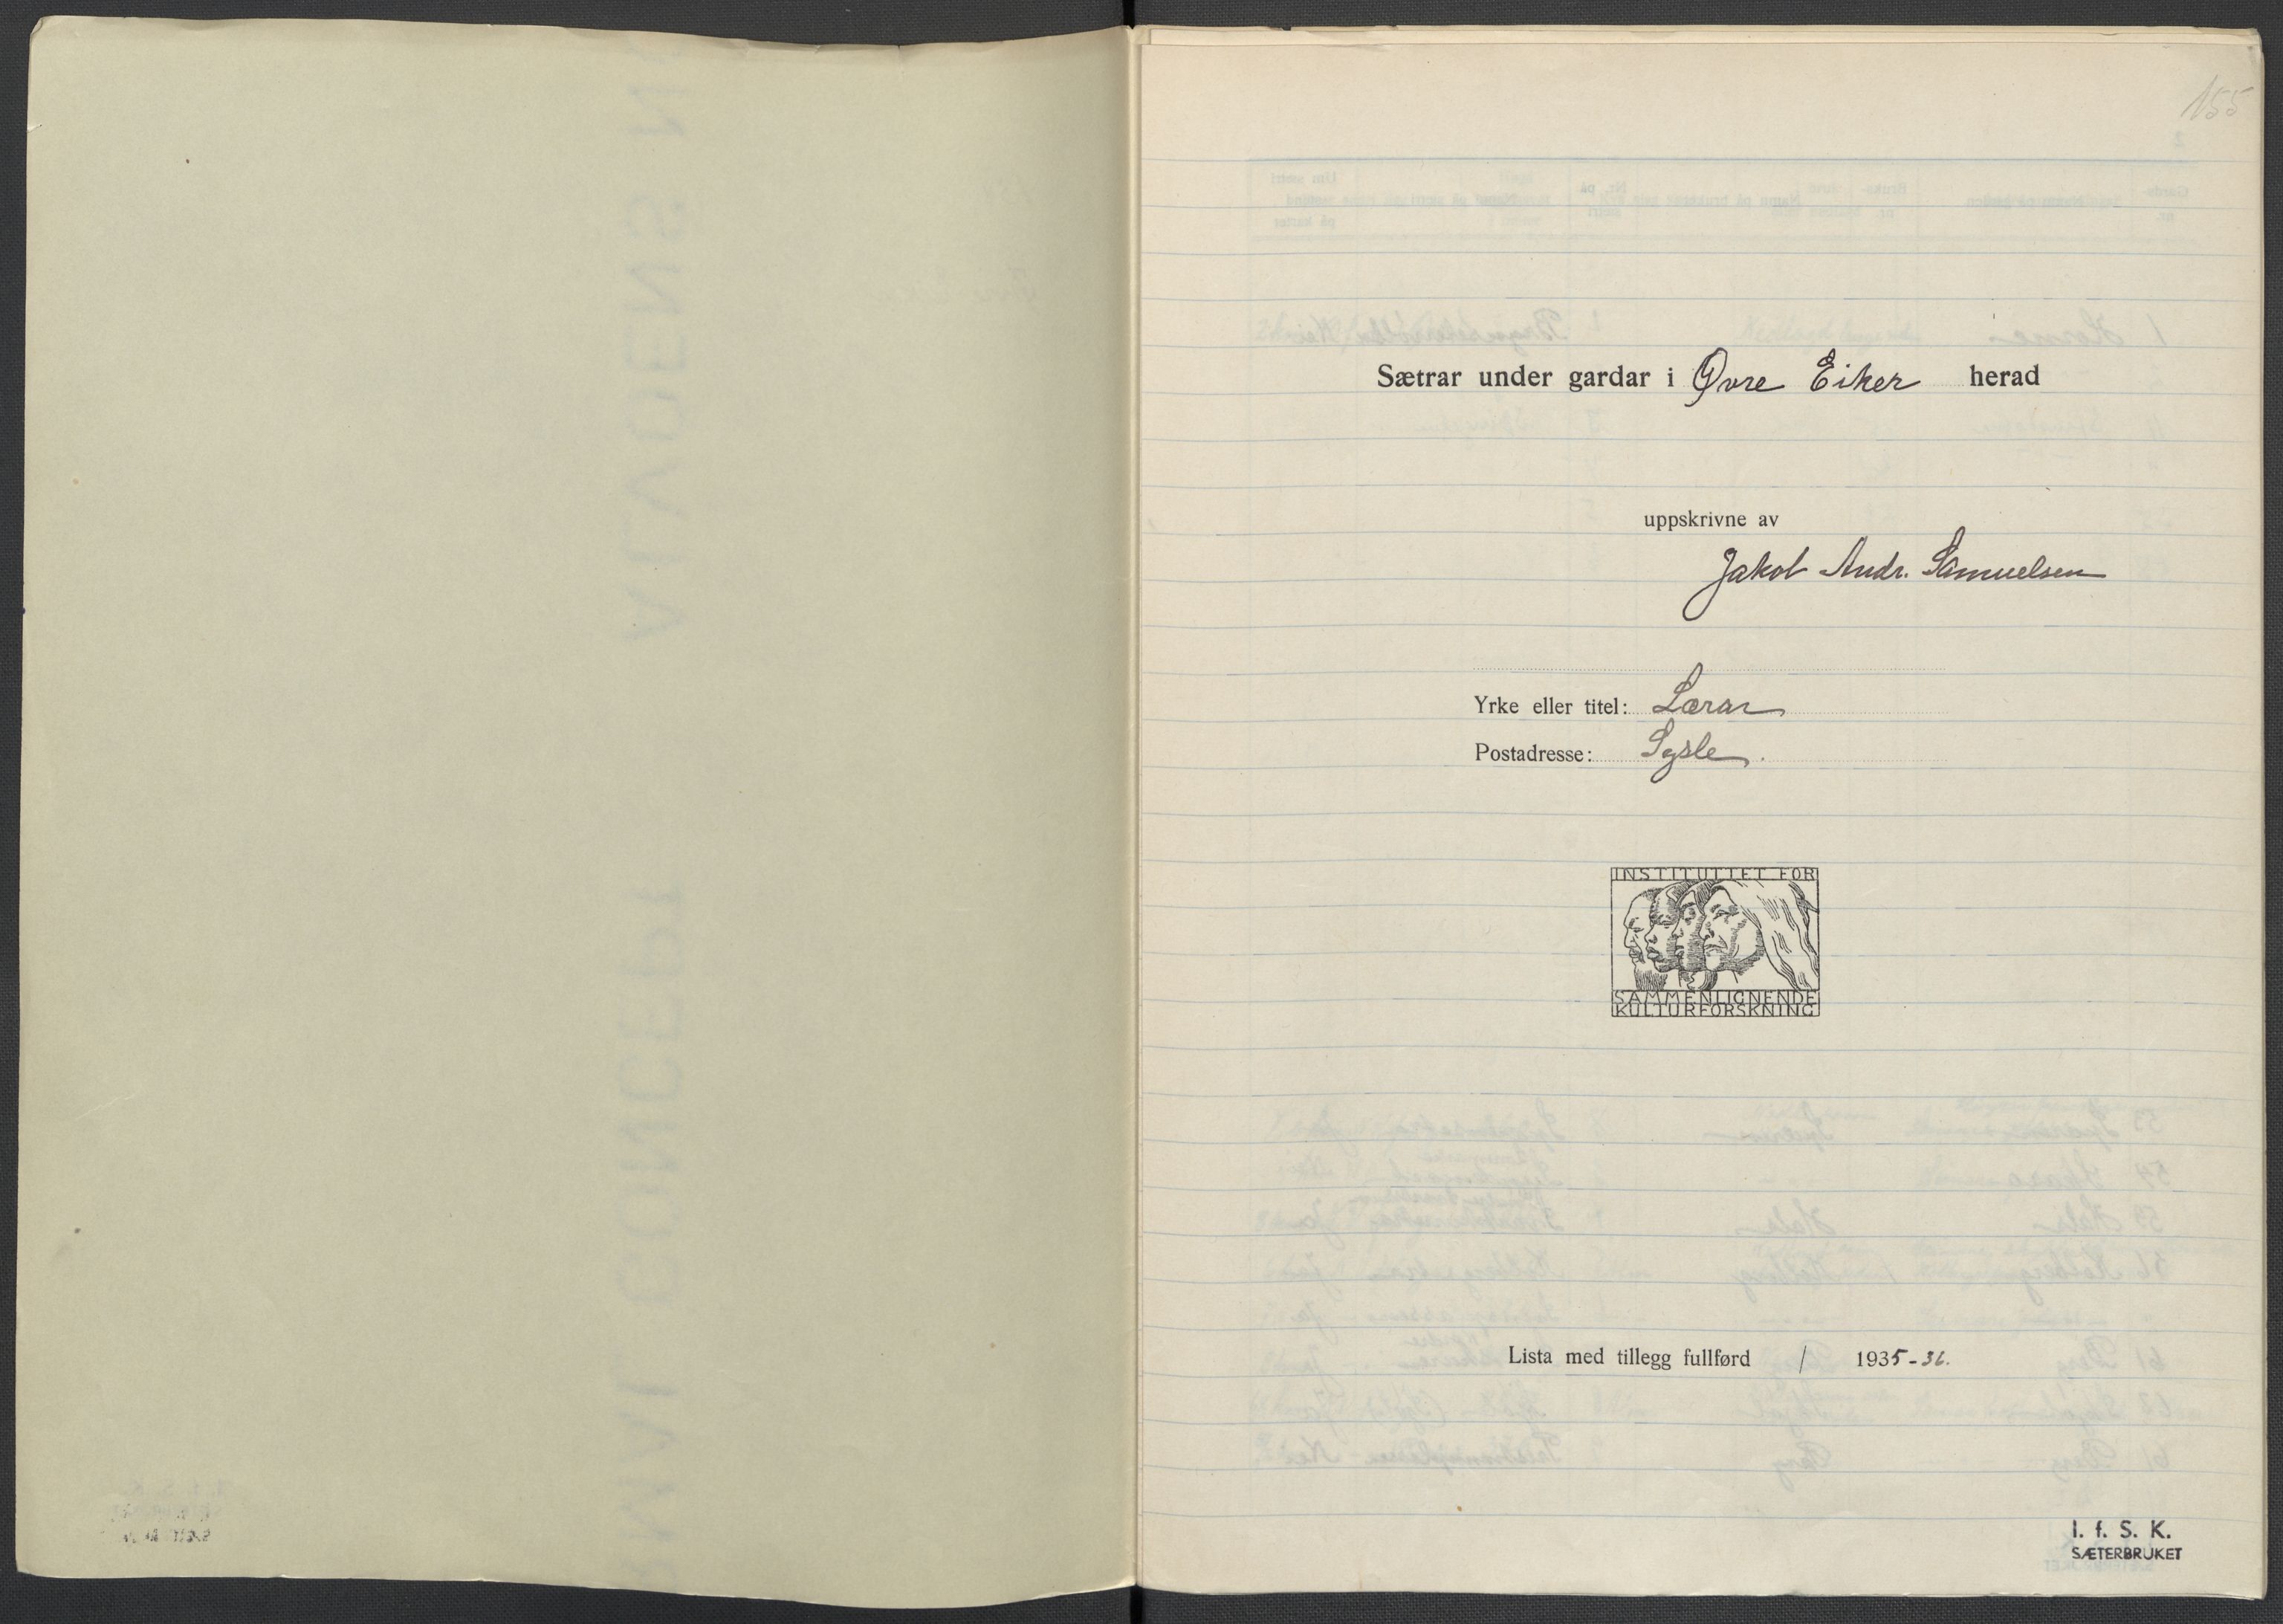 155
Sætrar under gardar i Øvre Eiker herad
uppskrivne av
Jakob Andr. Samuelsen
Yrke eller titel: Lærar
Postadresse: Sysle.
INSTITUTTET FOR
SAMMENLIGNENDE
KULTURFORSKNING
Lista med tillegg fullførd / 1935-36.
I. f. S. K.
SÆTERBRUKET